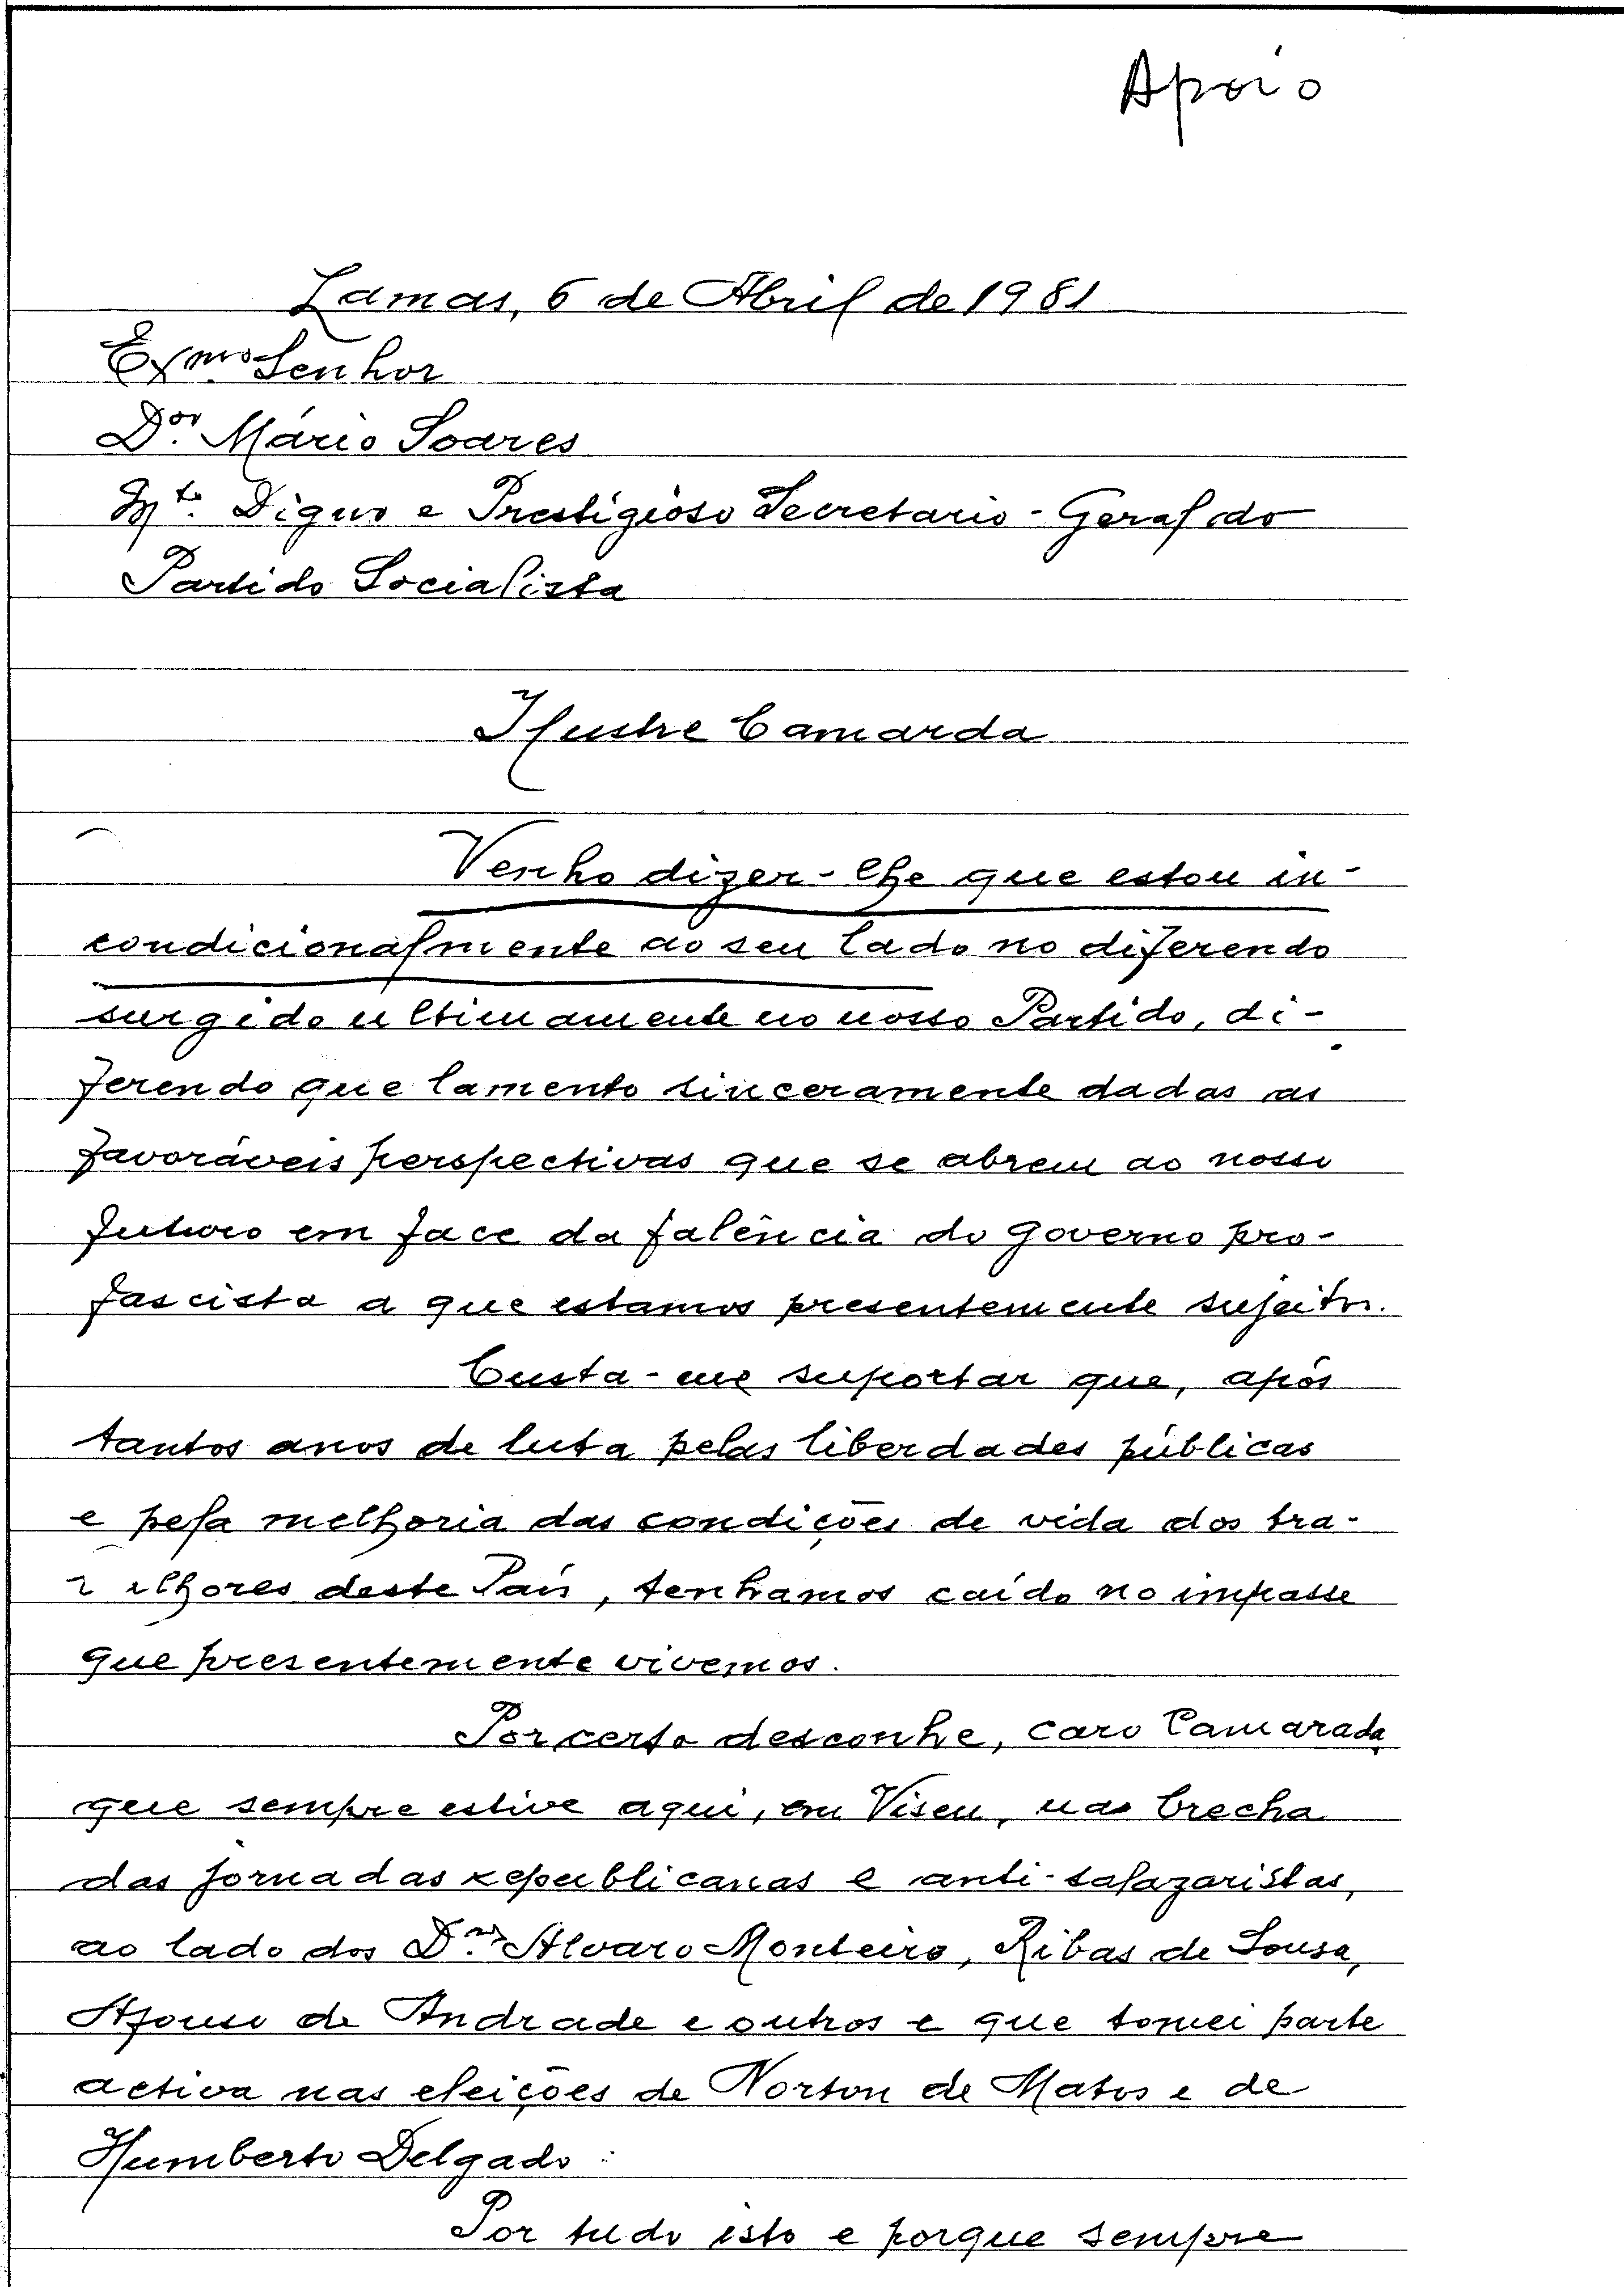 Apoio
Lamas, 6 de Abril de 1981
Exmo. Senhor
Dor. Mário Soares
Mto. Digno e Prestigioso Secretario-Geral do
Partido Socialista
Ilustre Camarda
Venho dizer-lhe que estou in-
condicionalmente ao seu lado no diferendo
surgido ultimamente no nosso Partido, di-
ferendo que lamento sinceramente dadas as
favoráveis perspectivas que se abrem ao nosso
futuro em face da falência do governo pro-
fascista a que estamos presentemente sujeitos.
Custa-me suportar que, após
tantos anos de luta pelas liberdades públicas
e pela melhoria das condições de vida dos tra-
lhores deste País, tenhamos caído no impasse
que presentemente vivemos.
Por certo desconhe, caro Camarada,
que sempre estive aqui, em Viseu, na brecha
das jornadas republicanas e anti-salazaristas,
ao lado dos Drs. Alvaro Monteiro, Ribas de Sousa,
Afonso de Andrade e outros e que tomei parte
activa nas eleições de Norton de Matos e de
Humberto Delgado.
Por tudo isto e porque sempre